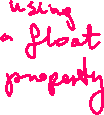 using
a float
property